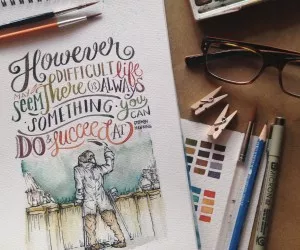 However
DIFFICULT life
MAY seem There is ALWAYS
SOMETHING you CAN
DO & succeed AT